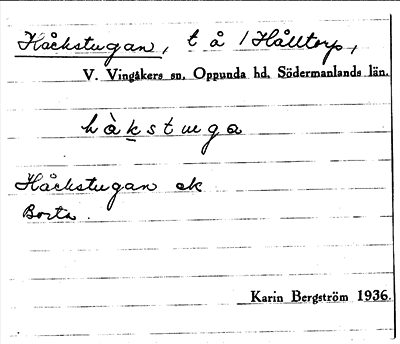 Håckstugan, t å / Hålltorp,
V. Vingåkers sn. Oppunda hd. Södermanlands län.
hàkstuga
Håckstugan ek
Borta.
Karin Bergström 1936.